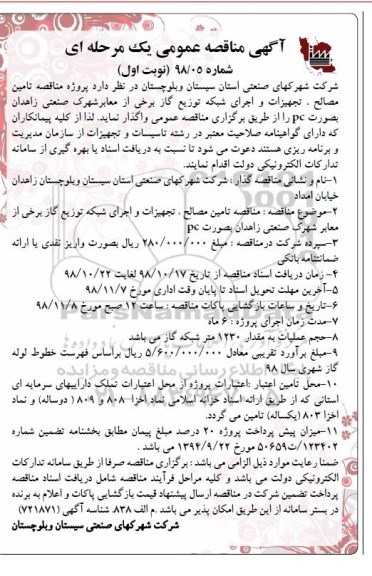 آگهی مناقصه عمومی یک مرحله ای
شماره ۹۸/۰۵ (نوبت اول)
شرکت شهرکهای صنعتی استان سیستان وبلوچستان در نظر دارد پروژه مناقصه تامین
مصالح ، تجهیزات و اجرای شبکه توزیع گاز برخی از معابرشهرک صنعتی زاهدان
بصورت pc را از طریق برگزاری مناقصه عمومی واگذار نماید. لذا از کلیه پیمانکاران
که دارای گواهینامه صلاحیت معتبر در رشته تاسیسات و تجهیزات از سازمان مدیریت
و برنامه ریزی هستند دعوت می شود تا نسبت به دریافت اسناد یا بهره گیری از سامانه
تدارکات الکترونیکی دولت اقدام نمایند.
۱-نام و نشانی مناقصه گذار : شرکت شهرکهای صنعتی استان سیستان وبلوچستان زاهدان
خیابان امداد
۲-موضوع مناقصه : مناقصه تامین مصالح ، تجهیزات و اجرای شبکه توزیع گاز برخی از
معابر شهرک صنعتی زاهدان بصورت pc
۳-سپرده شرکت درمناقصه : مبلغ ۲۸۰/۰۰۰/۰۰۰ ریال بصورت واریز نقدی یا ارائه
ضمانتنامه بانکی
۴- زمان دریافت اسناد مناقصه از تاریخ ۹۸/۱۰/۱۷ لغایت ۹۸/۱۰/۲۲
۵-آخرین مهلت تحویل اسناد تا پایان وقت اداری مورخ ۹۸/۱۱/۷
۶-تاریخ و ساعات بازگشایی پاکات مناقصه : ساعت ۱۲ صبح مورخ ۹۸/۱۱/۸
۷-مدت زمان اجرای پروژه : ۶ ماه
۸-حجم عملیات به مقدار ۱۲۳۰ متر شبکه گاز می باشد
۹-مبلغ برآورد تقریبی معادل ۵/۶۰۰/۰۰۰/۰۰۰ ریال براساس فهرست خطوط لوله
گاز شهری سال ۹۸
۱۰-محل تامین اعتبار :اعتبارات پروژه از محل اعتبارات تملک داراییهای سرمایه ای
استانی که از طریق ارائه اسناد خزانه اسلامی نماد اخزا ۸۰۸ و ۸۰۹ ( دوساله) و نماد
اخزا ۸۰۳ (یکساله) تامین می گردد.
۱۱-میزان پیش پرداخت پروژه ۲۰ درصد مبلغ پیمان مطابق بخشنامه تضمین شماره
۱۲۳۴۰۲/ت۵۰۶۵۹ه مورخ ۱۳۹۴/۹/۲۲ می باشد .
ضمنا رعایت موارد ذیل الزامی می باشد : برگزاری مناقصه صرفا از طریق سامانه تدارکات
الکترونیکی دولت می باشد و کلیه مراحل فرآیند مناقصه شامل دریافت اسناد مناقصه
پرداخت تضمین شرکت در مناقصه ارسال پیشنهاد قیمت بازگشایی پاکات و اعلام به برنده
در بستر سامانه از این طریق امکان پذیر می باشد .م الف ۸۳۸. شناسه آگهی (۷۲۱۸۷۱)
شرکت شهرکهای صنعتی سیستان وبلوچستان